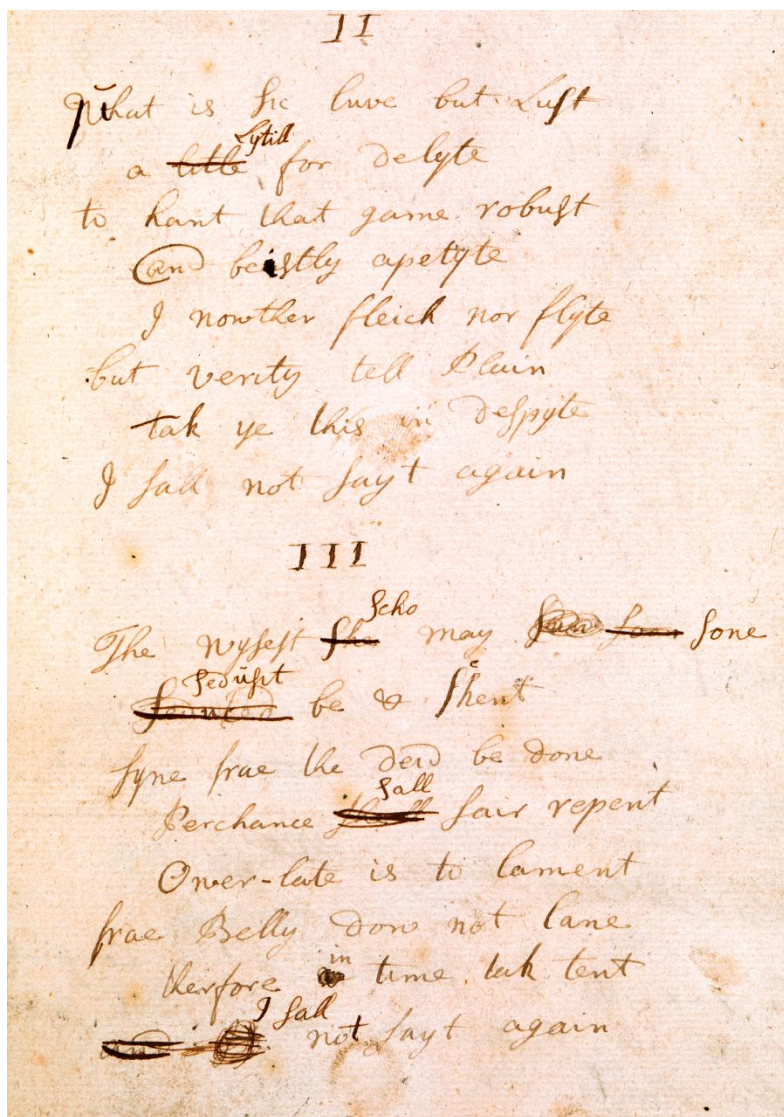 II
What is sic luve but Lust
a Lytill for delyte
to hant that game robust
and beistly apetyte
I nowther fleich nor flyte
but verity tell Plain
tak ye this in despyte
I sall not sayt again
III
The wysest scho may sone
sedusit be & shent
syne frae the deid be done
Perchance sall sair repent
Ower-late is to lament
frae Belly dow not lane
therfore in time tak tent
I sall not sayt again